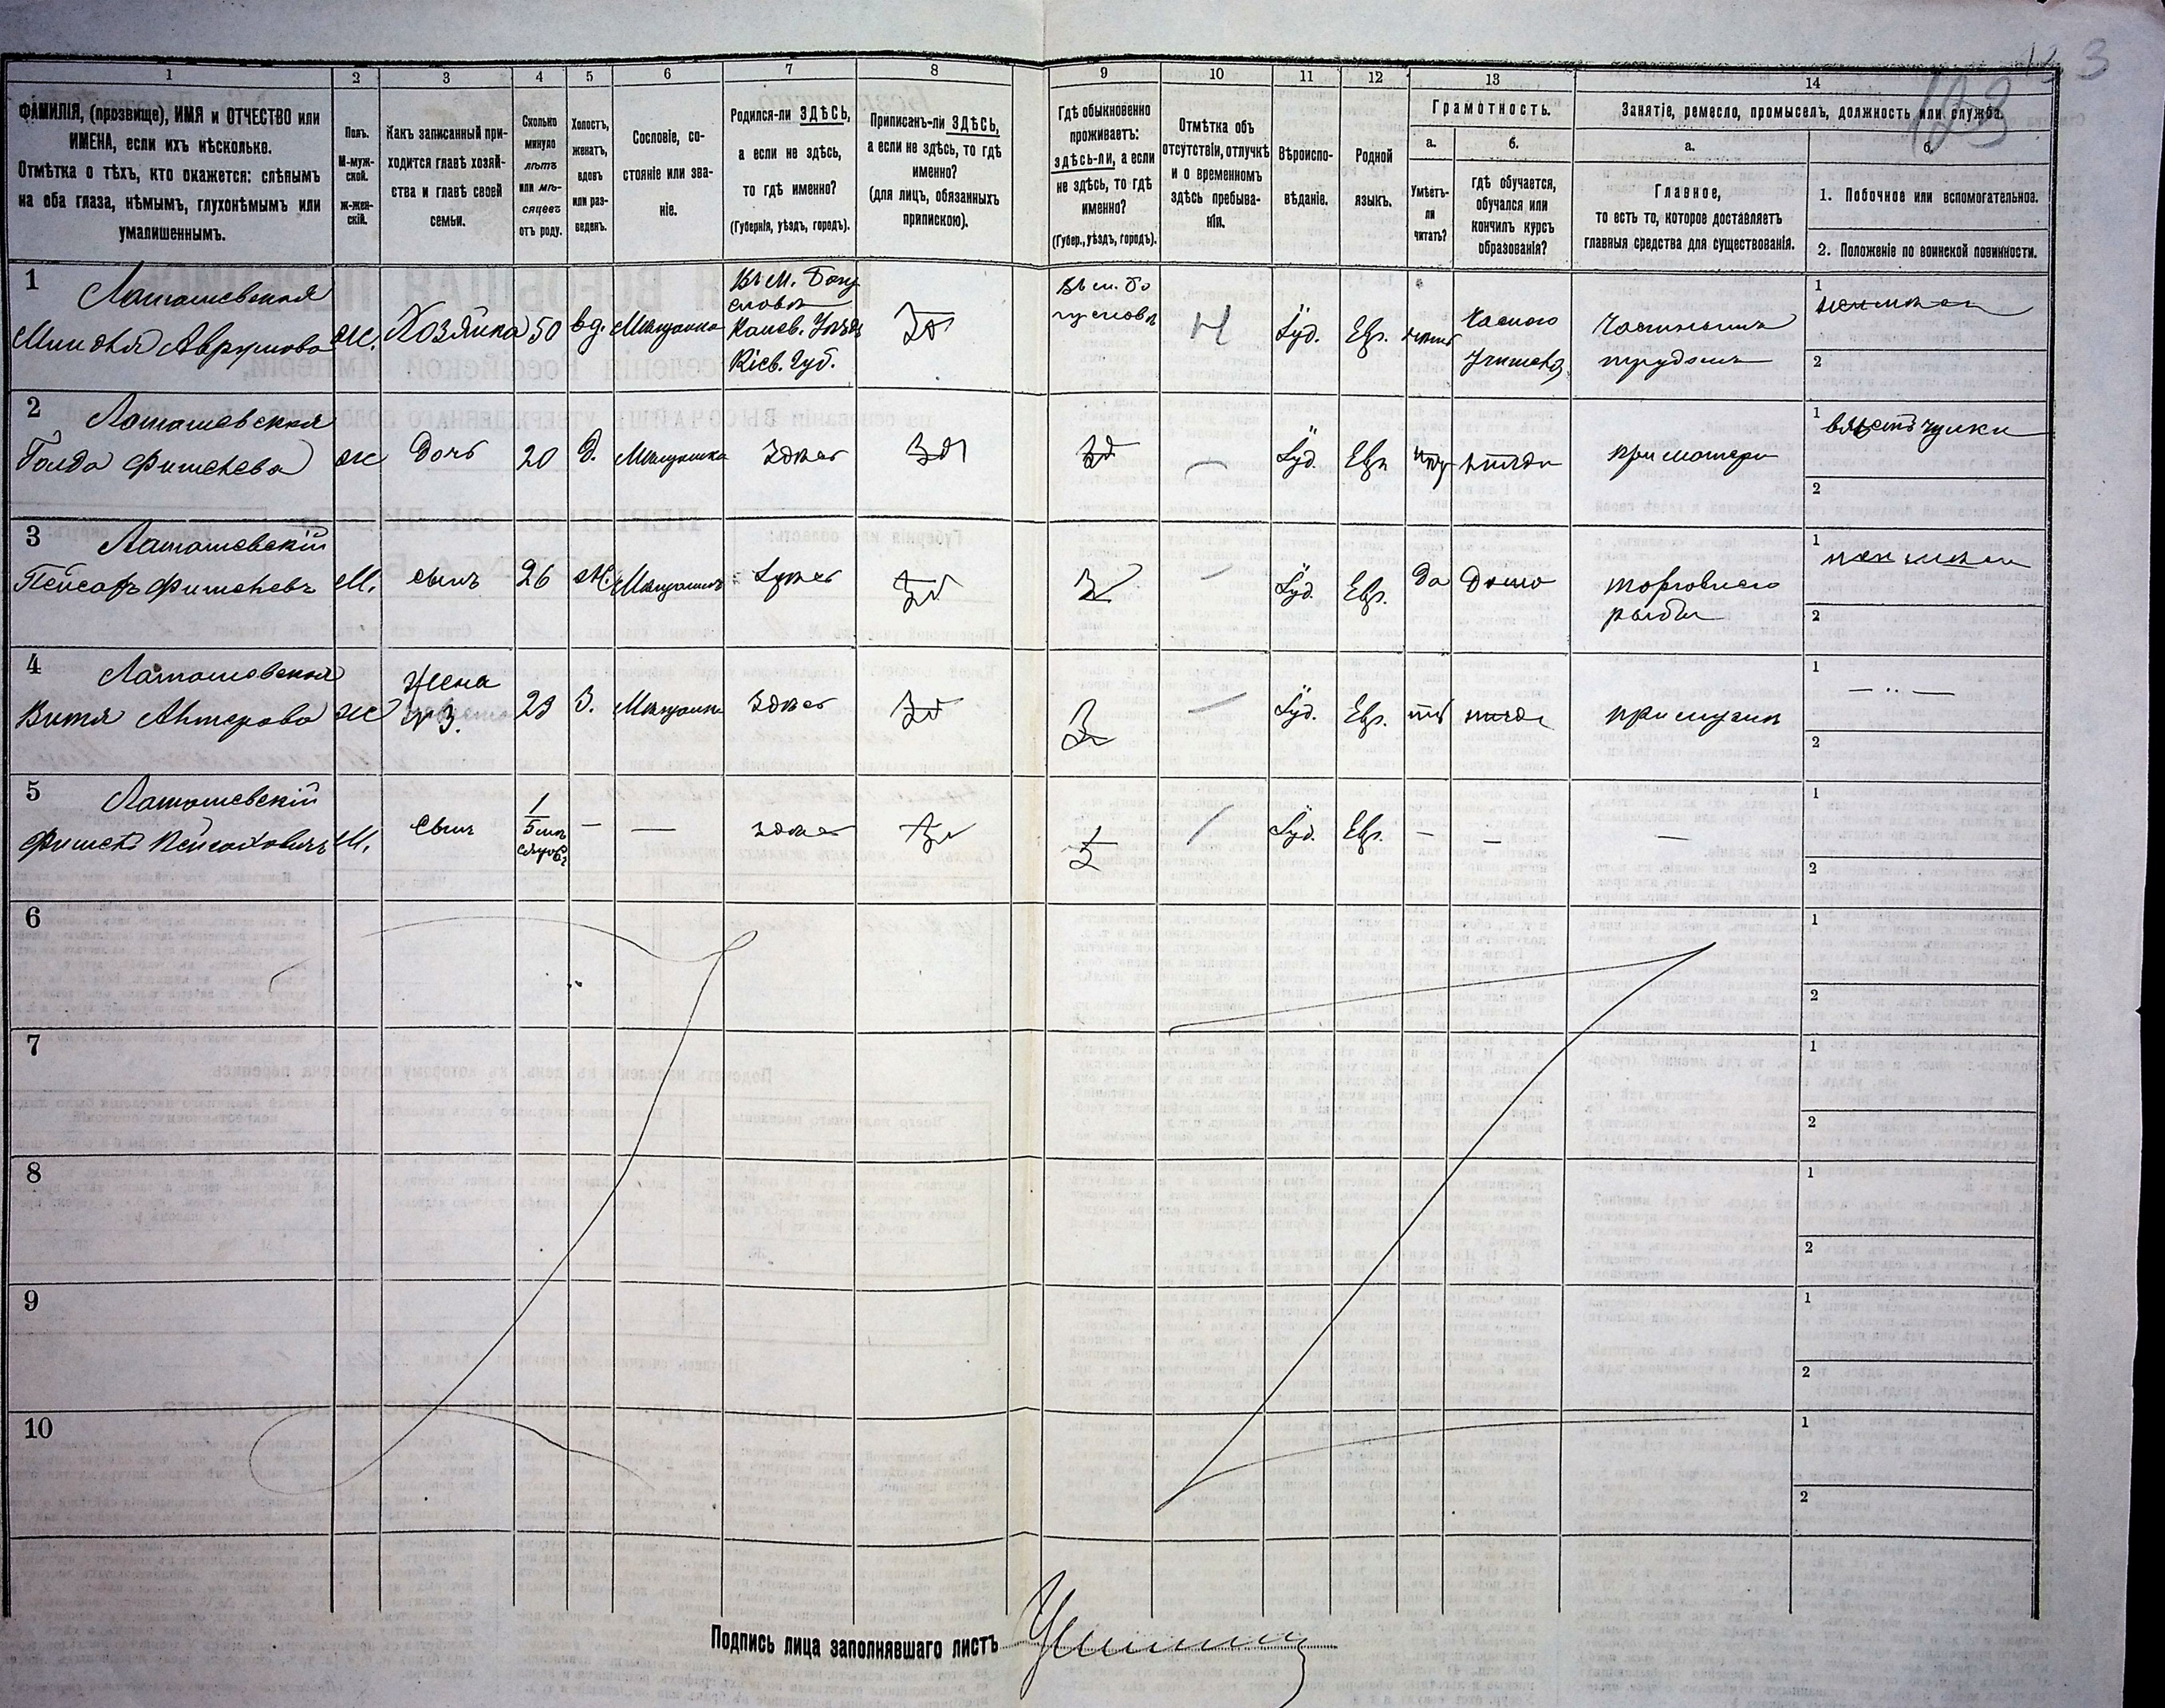 1 2 3 4 5 6 7 8 9 10 11 12 13 14
123
ФАМИЛІЯ, (прозвище), ИМЯ и ОТЧЕСТВО или
ИМЕНА, если ихъ нѣсколько.
Отмѣтка о тѣхъ, кто окажется: слѣпымъ
на оба глаза, нѣмымъ, глухонѣмымъ или
умалишеннымъ.
Полъ.
М-муж-
ской.
ж-жен-
скій.
Какъ записанный при-
ходится главѣ хозяй-
ства и главѣ своей
семьи.
Сколько
минуло
лѣтъ
или мѣ-
сяцевъ
отъ роду.
Холостъ,
женатъ,
вдовъ
или раз-
веденъ.
Сословіе, со-
стояніе или зва-
ніе.
Родился-ли ЗДѢСЬ,
а если не здѣсь,
то гдѣ именно?
(Губернія, уѣздъ, городъ).
Приписанъ-ли ЗДѢСЬ,
а если не здѣсь, то гдѣ
именно?
(для лицъ, обязанныхъ
припискою).
Гдѣ обыкновенно
проживаетъ:
здѣсь-ли, а если
не здѣсь, то гдѣ
именно?
(Губер., уѣздъ, городъ).
Отмѣтка объ
отсутствіи, отлучкѣ
и о временномъ
здѣсь пребыва-
ніи.
Вѣроиспо-
вѣданіе.
Родной
языкъ.
Грамотность.
а.
Умѣетъ-
ли
читать?
б.
гдѣ обучается,
обучался или
кончилъ курсъ
образованія?
Занятіе, ремесло, промыселъ, должность или служба.
а.
Главное,
то есть то, которое доставляетъ
главныя средства для существованія.
б.
1. Побочное или вспомогательное.
2. Положеніе по воинской повинности.
1 Латашевская
Миндля Аврумова ж. Хозяйка 50 вд. Мещанка
Въ М. Богу
славѣ
Канев. Уѣзда
Кіев. Губ.
Зд
Въ м. Бо
гуславѣ
Іуд. Евр.
Частного
Учителя
Частнымъ
трудомъ
1
2
2 Латашевская
Голда Фишелева ж Дочь 20 д. Мещанка Здѣсь Зд Зд Іуд. Евр. при матери
1 вяжетъ чулки
2
3 Латашевскій
Пейсахъ Фишелевъ М. сынъ 26 ж. Мещанинъ Зд Іуд. Евр. Да Дома
торговлею
рыбы
1
2
4 Латашевская
Жена
№ 3.
Витя ж 23 З. Мещанка Здѣсь Зд Іуд. Евр. при мужѣ
1 — ·· —
2
5 Латашевскій
Фишель Пейсаховичъ М. Сынъ — — здѣсь Зд Іуд. Евр. — — —
1
2
6 1
2
7 1
2
8 1
2
9 1
2
10 1
2
Подпись лица заполнявшаго листъ